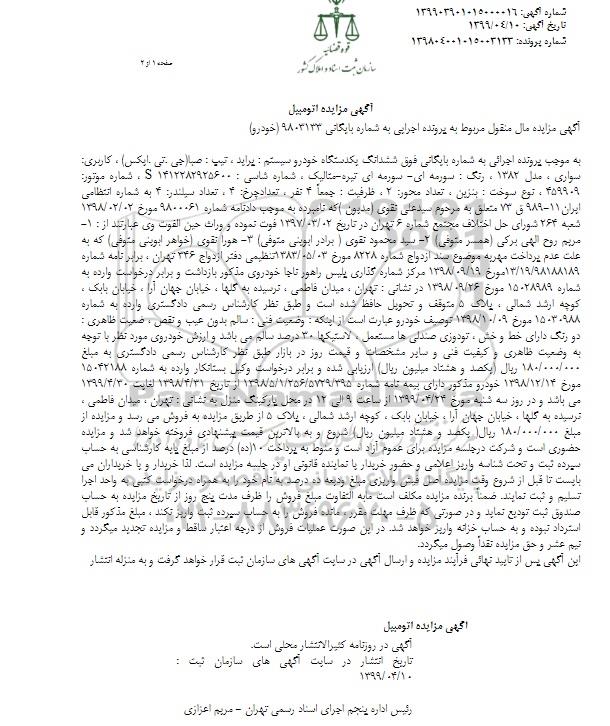 شماره آگهی: ۱۳۹۹۰۳۹۰۱۰۱۵۰۰۰۰۱۶
تاریخ آگهی: ۱۳۹۹/۰۴/۱۰
شماره پرونده: ۱۳۹۸۰۴۰۰۱۰۱۵۰۰۳۱۳۳
قوه قضائیه
سازمان ثبت اسناد و املاک کشور
صفحه ۱ از ۲
آگهی مزایده اتومبیل
آگهی مزایده مال منقول مربوط به پرونده اجرایی به شماره بایگانی ۹۸۰۳۱۳۳ (خودرو)
به موجب پرونده اجرائی به شماره بایگانی فوق ششدانگ یکدستگاه خودرو سیستم : پراید ، تیپ : صبا(جی .تی .ایکس) ، کاربری:
سواری ، مدل ۱۳۸۲ ، رنگ : سورمه ای- سورمه ای تیره-متالیک ، شماره شاسی : S ۱۴۱۲۲۸۲۹۲۵۶۰۰ ، شماره موتور:
۴۵۹۹۰۹ ، نوع سوخت : بنزین ، تعداد محور: ۲ ، ظرفیت : جمعاً ۴ نفر ، تعدادچرخ: ۴ ، تعداد سیلندر: ۴ به شماره انتظامی
ایران۱۱-۹۸۹ ق ۷۳ متعلق به مرحوم سیدعلی تقوی (مدیون )که نامبرده به موجب دادنامه شماره ۹۸۰۰۰۶۱ مورخ ۱۳۹۸/۰۲/۰۲
شعبه ۲۶۴ شورای حل اختلاف مجتمع شماره ۶ تهران در تاریخ ۱۳۹۷/۰۳/۰۲ فوت نموده و وراث حین الفوت وی عبارتند از : ۱-
مریم روح الهی برکی (همسر متوفی) ۲- سید محمود تقوی ( برادر ابوینی متوفی) ۳- هورا تقوی (خواهر ابوینی متوفی) که به
علت عدم پرداخت مهریه موضوع سند ازدواج شماره ۸۲۲۸ مورخ ۱۳۸۳/۰۵/۰۳تنظیمی دفتر ازدواج ۳۴۶ تهران ، برابر نامه شماره
۱۳/۱۹/۹۸۱۸۸۱۸۹مورخ ۱۳۹۸/۰۹/۱۹ مرکز شماره گذاری پلیس راهور ناجا خودروی مذکور بازداشت و برابر درخواست وارده به
شماره ۱۵۰۲۸۹۸۹ مورخ ۱۳۹۸/۰۹/۲۶ در نشانی : تهران ، میدان فاطمی ، نرسیده به گلها ، خیابان جهان آرا ، خیابان بابک ،
کوچه ارشد شمالی ، پلاک ۵ متوقف و تحویل حافظ شده است و طبق نظر کارشناس رسمی دادگستری وارده به شماره
۱۵۰۳۰۹۸۸ مورخ ۱۳۹۸/۱۰/۰۹ توصیف خودرو عبارت است از اینکه : وضعیت فنی : سالم بدون عیب و نقص ، ضعیت ظاهری :
دو رنگ دارای خط و خش ، تودوزی صندلی ها مستعمل ، لاستیکها ۳۰ درصد سالم می باشد و ارزش خودروی مورد نظر با توجه
به وضعیت ظاهری و کیفیت فنی و سایر مشخصات و قیمت روز در بازار طبق نظر کارشناس رسمی دادگستری به مبلغ
۱۸۰/۰۰۰/۰۰۰ ریال (یکصد و هشتاد میلیون ریال) ارزیابی شده و برابر درخواست وکیل بستانکار وارده به شماره ۱۵۰۴۲۱۸۸
مورخ ۱۳۹۸/۱۲/۱۴ خودرو مذکور دارای بیمه نامه شماره ۱۳۹۸/۵/۱/۲۵۶/۵۷۲۹/۳۹۵ از تاریخ ۱۳۹۸/۴/۳۱ لغایت ۱۳۹۹/۴/۳۰
می باشد و در روز سه شنبه مورخ ۱۳۹۹/۰۴/۲۴ از ساعت ۹ الی ۱۲ در محل پارکینگ منزل به نشانی : تهران ، میدان فاطمی ،
نرسیده به گلها ، خیابان جهان آرا ، خیابان بابک ، کوچه ارشد شمالی ، پلاک ۵ از طریق مزایده به فروش می رسد و مزایده از
مبلغ ۱۸۰/۰۰۰/۰۰۰ ریال( یکصد و هشتاد میلیون ریال) شروع و به بالاترین قیمت پیشنهادی فروخته خواهد شد و مزایده
حضوری است و شرکت درجلسه مزایده برای عموم آزاد است و منوط به پرداخت ۱۰(ده) درصد از مبلغ پایه کارشناسی به حساب
سپرده ثبت و تحت شناسه واریز اعلامی و حضور خریدار یا نماینده قانونی او در جلسه مزایده است. لذا خریدار و یا خریداران می
بایست تا قبل از شروع وقت مزایده اصل فیش واریزی مبلغ ودیعه ده درصد به نام خود را به همراه درخواست کتبی به واحد اجرا
تسلیم و ثبت نمایند. ضمناً برنده مزایده مکلف است مابه التفاوت مبلغ فروش را ظرف مدت پنج روز از تاریخ مزایده به حساب
صندوق ثبت تودیع نماید و در صورتی که ظرف مهلت مقرر ، مانده فروش را به حساب سپرده ثبت واریز نکند ، مبلغ مذکور قابل
استرداد نبوده و به حساب خزانه واریز خواهد شد. در این صورت عملیات فروش از درجه اعتبار ساقط و مزایده تجدید میگردد و
نیم عشر و حق مزایده نقداً وصول میگردد.
این آگهی پس از تایید نهائی فرآیند مزایده و ارسال آگهی در سایت آگهی های سازمان ثبت قرار خواهد گرفت و به منزله انتشار
آگهی مزایده اتومبیل
آگهی در روزنامه کثیرالانتشار محلی است.
تاریخ انتشار در سایت آگهی های سازمان ثبت :
۱۳۹۹/۰۴/۱۰
رئیس اداره پنجم اجرای اسناد رسمی تهران - مریم اعزازی